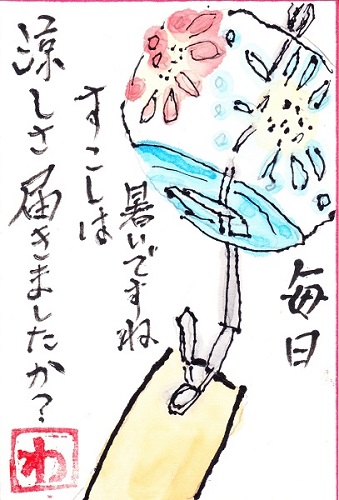 毎日
暑いですね
すこしは
涼しさ届きましたか？
わ